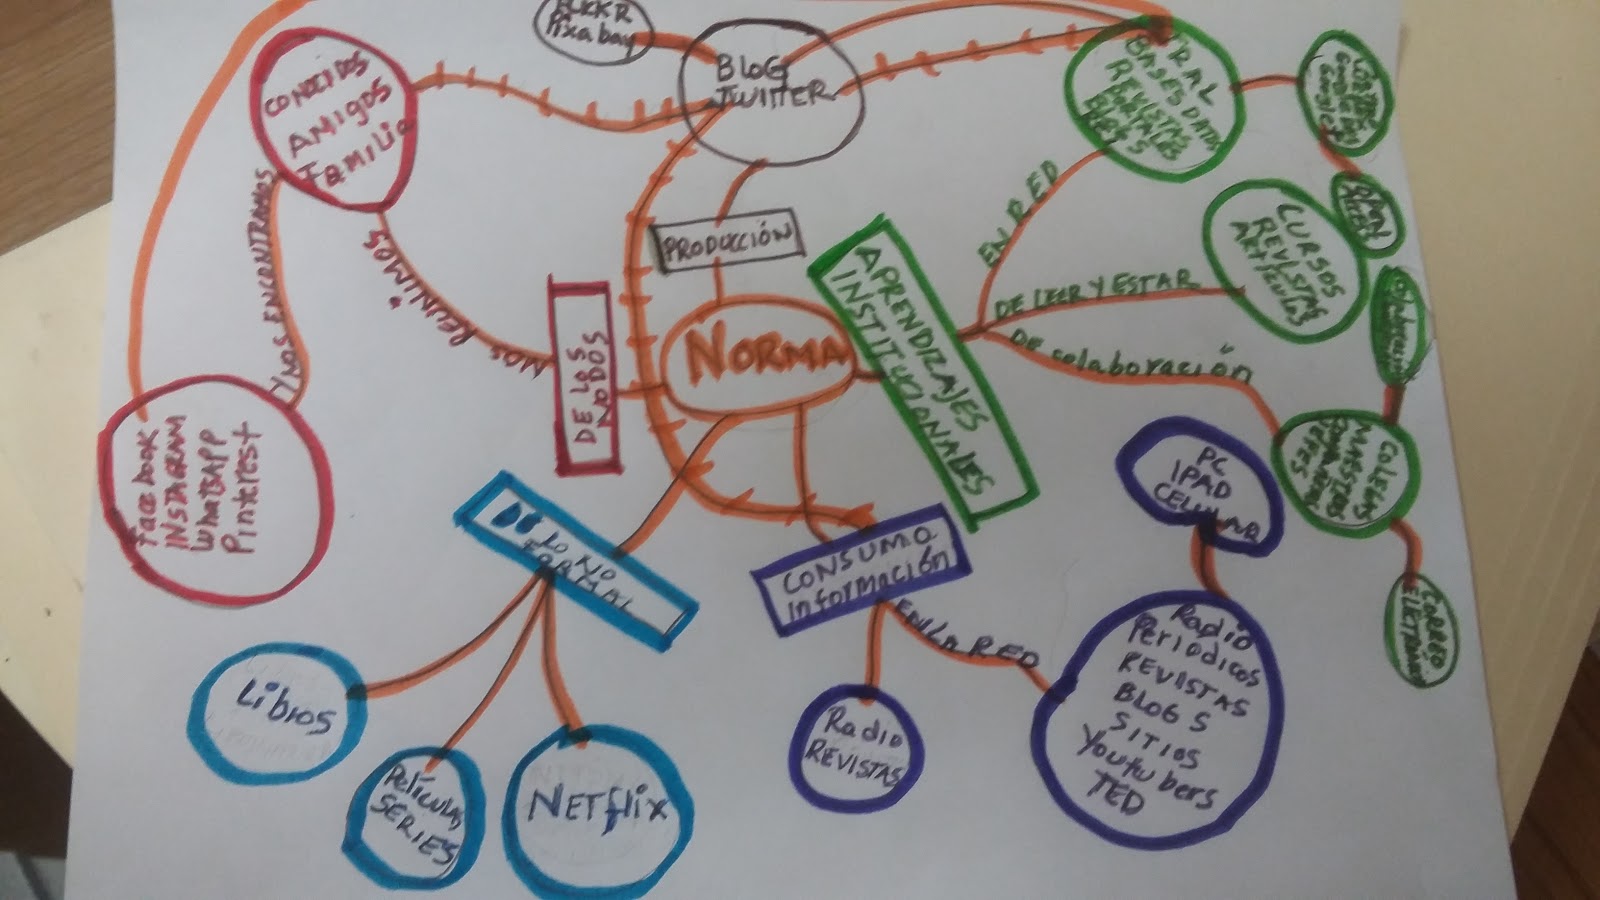 FLKKR
Pixabay
BLOG
TWITTER
PRODUCCIÓN
NORMA
CONOCIDOS
AMIGOS
FAMILIA
Y NOS ENCONTRAMOS
NOS REUNIMOS
DE LOS
NODOS
Facebook
INSTAGRAM
WhatsAPP
Pinterest
APRENDIZAJES
INSTITUCIONALES
EN RED
RAL
BASES DATOS
REVISTAS
PORTALES
DE LEER Y ESTAR
CURSOS
REVISTAS
ARTICULOS
OPEN
De colaboración
COLEGAS
MAESTROS
CORREO
ELECTRONICO
DE LO NO
FORMAL
Libros
Películas
SERIES
NETflix
CONSUMO
Información
EN LA RED
Radio
REVISTAS
PC
IPAD
CELULAR
Radio
Periodicos
REVISTAS
BLOGS
SITIOS
Youtubers
TED